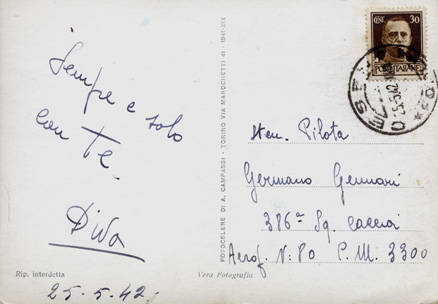 Sempre e solo
con Te.
Diva
Rip. interdetta
25-5-42.
FOTOCELERE DI A. CAMPASSI - TORINO VIA MAROCCHETTI 41 - 1941-XIX
Vera Fotografia
CENT. 30
POSTE ITALIANE
Sten. Pilota
Germano Gennari
386ª Sq. Caccia
Aerop. N: 80 P. M. 3300